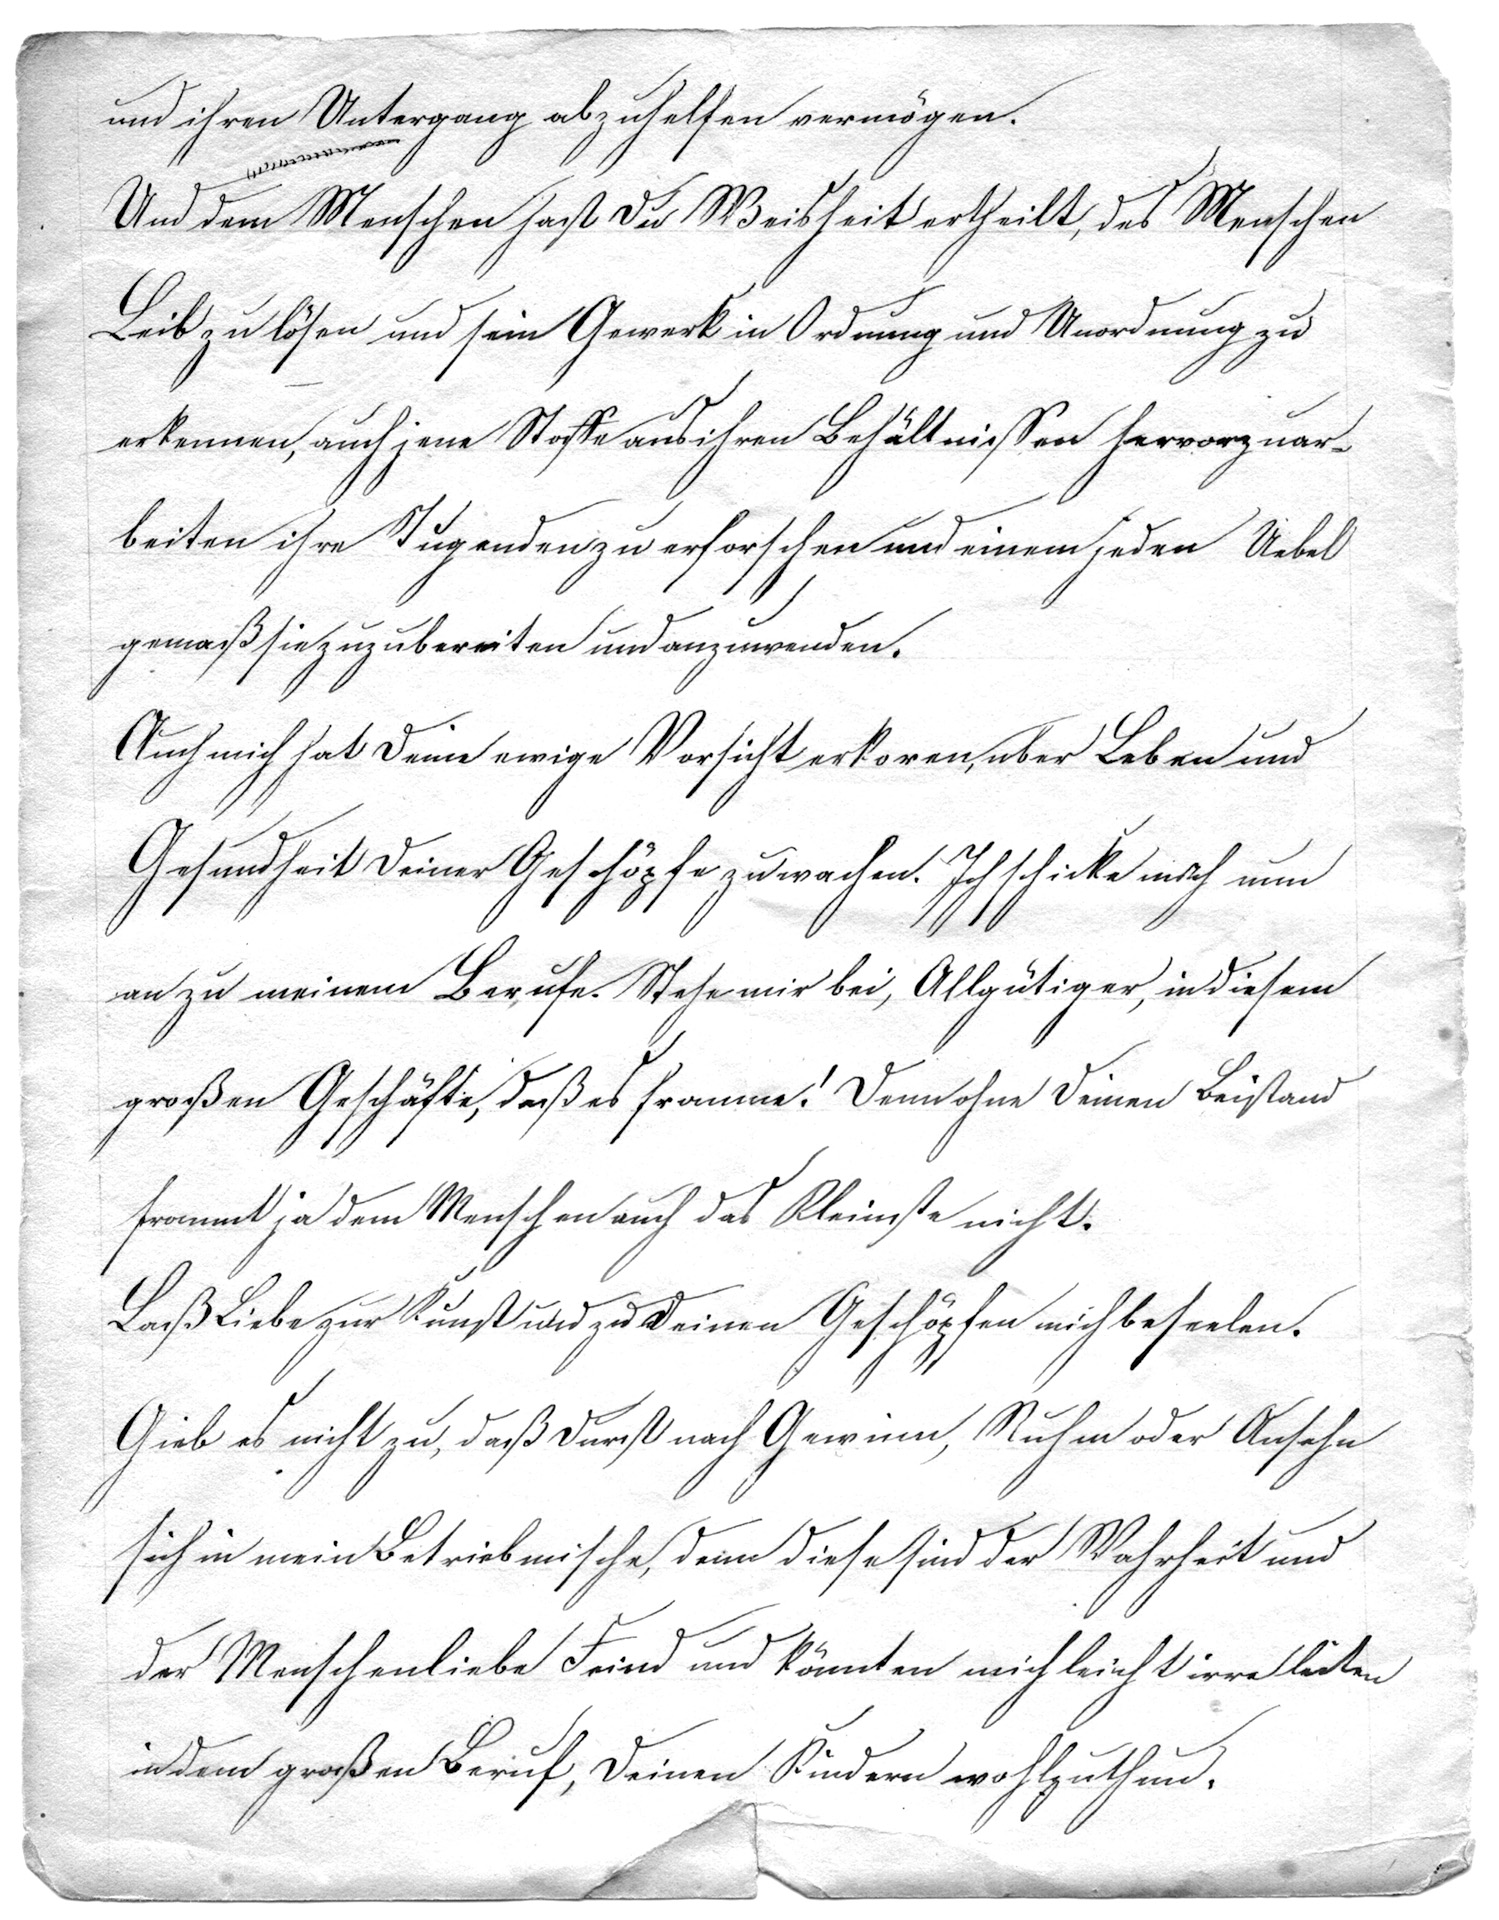 und ihren Untergang abzuhelfen vermögen.
Und dem Menschen hast Du Weisheit ertheilt, des Menschen
Leib zu lösen und sein Gewerk in Ordnung und Unordnung zu
erkennen, auch jene Stoffe aus ihren Behältnissen hervorzuar-
beiten ihre Tugenden zu erforschen und einem jeden Uebel
gemäß sie zuzubereiten und anzuwenden.
Auch mich hat Deine ewige Vorsicht erkoren, über Leben und
Gesundheit Deiner Geschöpfe zu wachen. Ich schicke mich nun
an zu meinem Berufe. Stehe mir bei, Allgütiger, in diesem
großen Geschäfte, daß es fromme! Denn ohne Deinen Beistand
frommt ja dem Menschen auch das Kleinste nicht.
Laß Liebe zur Kunst und zu Deinen Geschöpfen mich beseelen.
Gieb es nicht zu, daß Durst nach Gewinn, Ruhm oder Ansehn
sich in mein Betrieb mische, denn diese sind der Wahrheit und
der Menschenliebe Feind und könnten mich leicht irre leiten
in dem großen Beruf, Deinen Kindern wohlzuthun.